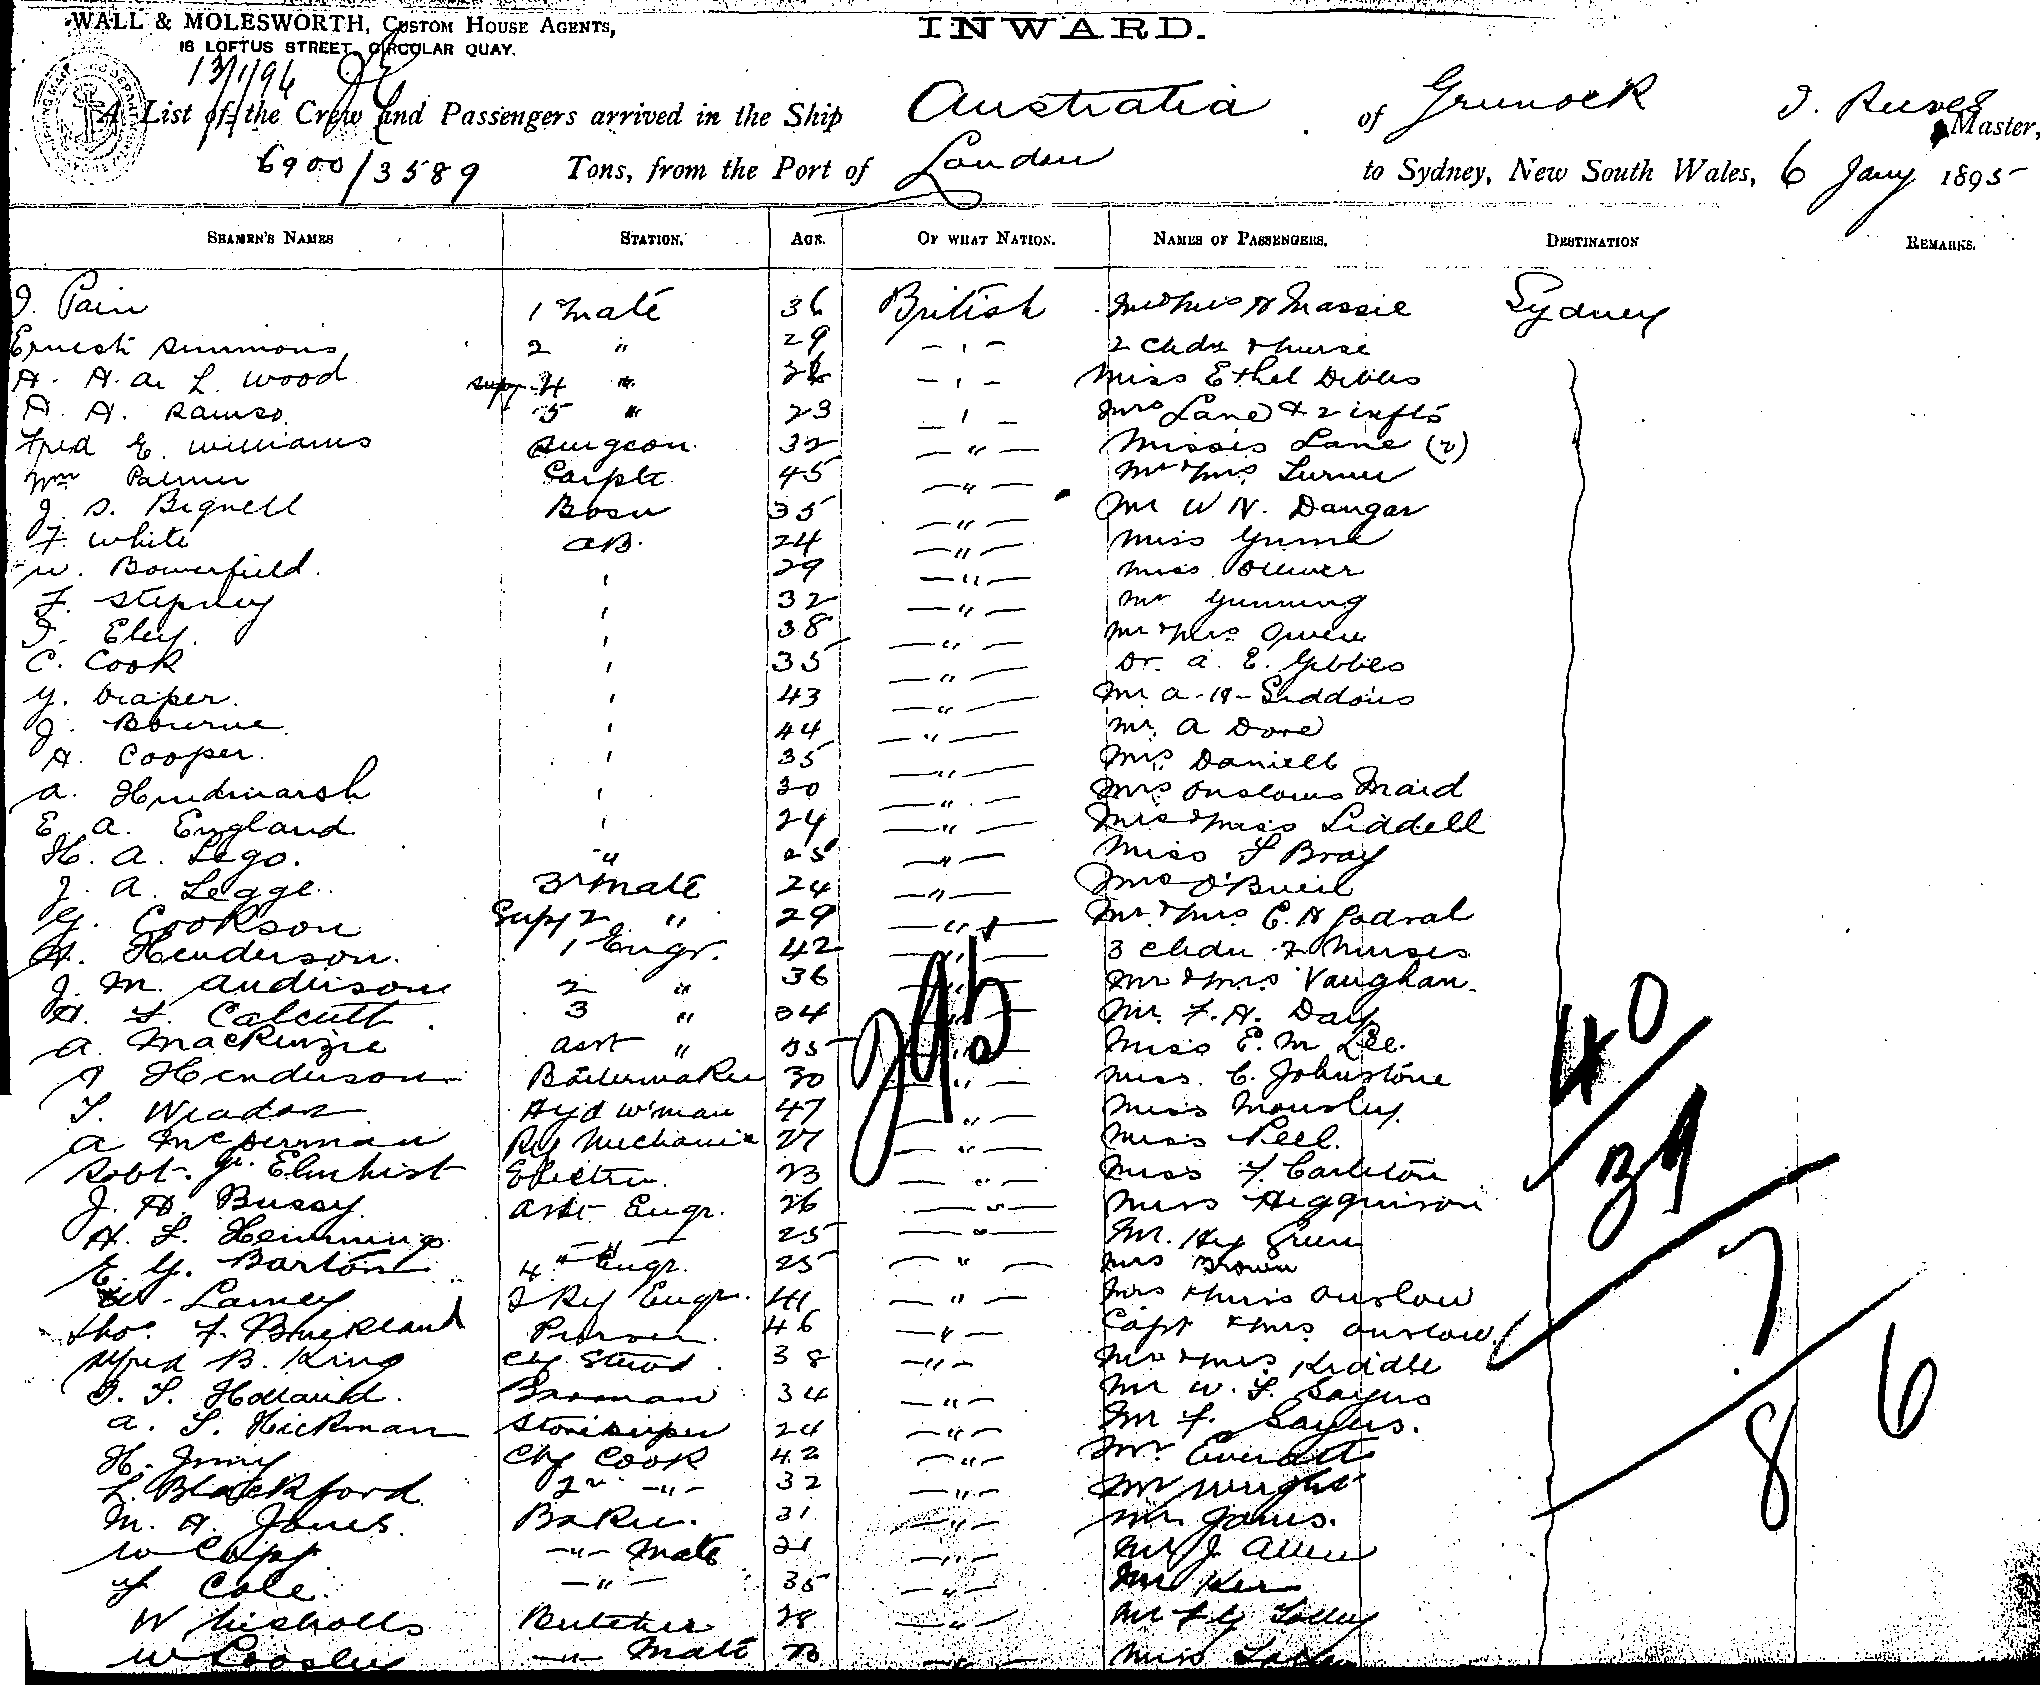 WALL & MOLESWORTH, CUSTOM HOUSE AGENTS,
INWARD.
18 LOFTUS STREET, CIRCULAR QUAY.
13/1/96
A List of the Crew and Passengers arrived in the Ship Australia of Greenock J. Reeves Master,
6900/3589 Tons, from the Port of London to Sydney, New South Wales, 6 Jany 1895
SEAMEN'S NAMES STATION. AGE. OF WHAT NATION. NAMES OF PASSENGERS. DESTINATION REMARKS.
Pain 1 Mate 36 British Mr & Mrs H Massie Sydney
Ernest Simmons 2 " 29 - " - 2 chdn & nurse
A. H. L. Wood supy 4 " - " - Miss Ethel Dibbs
A. H. 5 " 23 - " - Mrs Lane & 2 infts
Fred E. Williams Surgeon 32 - " - Misses Lane (2)
Wm Palmer Carptr 45 - " - Mr & Mrs Turner
J. S. Bignell Bosn 35 - " - Mr W N. Dangar
F. White AB. 24 - " - Miss
W. Bowerfield. " 29 - " - Miss Oliver
F. Stepney " 32 - " - Mr Gunning
Eley. " 38 - " - Mr & Mrs Owen
C. Cook " 35 - " - Dr. A. E. Gibbes
G. Draper. " 43 - " - Mr A. H. Siddons
J. Bourne " 44 - " - Mr. A Dove
H. Cooper. " 35 - " - Mrs Daniell
A. Hindmarsh " 30 - " - Mrs Onslows Maid
E. A. England " 24 - " - Mrs & Miss Liddell
H. A. Lego. " 25 - " - Miss F Bray
J. A. Legge. 3r Mate 24 - " - Mrs O'Brien
G. Cookson Supy 2 " 29 - " - Mr & Mrs C. H
H. Henderson. 1 Engr. 42 - " - 3 chdn & Nurses
J. M. Anderson 2 " 36 - " - Mr & Mrs Vaughan.
H. F. Calcutt 3 " 34 - " - Mr. F. H. Day
A. MacKenzie asst " 35 - " - Miss E. M Lee.
Henderson Boilermaker 30 - " - Miss. C. Johnstone
T. Hyd w'man 47 - " - Miss Mousley.
A McDerman Ref Mechanic 27 - " - Miss Peel.
Robt. Electrn. 23 - " - Miss F. Carleton
J. H. Bussy. asst Engr. 26 - " - Miss Higginson
H. L. Hemmings - " - 25 - " - Mr. Hy Green
E. G. Barton 4th Engr. 25 - " - Mrs Brown
W. Lamey 2 Ref Engr. 41 - " - Mrs & Miss Onslow
Thos. F. Buckland Purser. 46 - " - Capt & Mrs Onslow
Alfred B. King Chf Stewd. 38 - " - Mr & Mrs Kiddle
T. Holland. Barman 34 - " - Mr W. F. Sayers
A. T. Hickman Storekeeper 24 - " - Mr F. Sayers.
H. Chf Cook 42 - " - Mr. Everett
L. Blackford 2nd - " - 32 - " - Mr Wright
M. H. Jones. Baker. 31 - " - Mr James.
W - " - Mate 21 - " - Mr J. Allen
Cole. - " - 35 - " - Mr Ker
W Nicholls Butcher 28 - " - Mr F G
W - " - Mate 23 - " - Miss
40
39
7
86